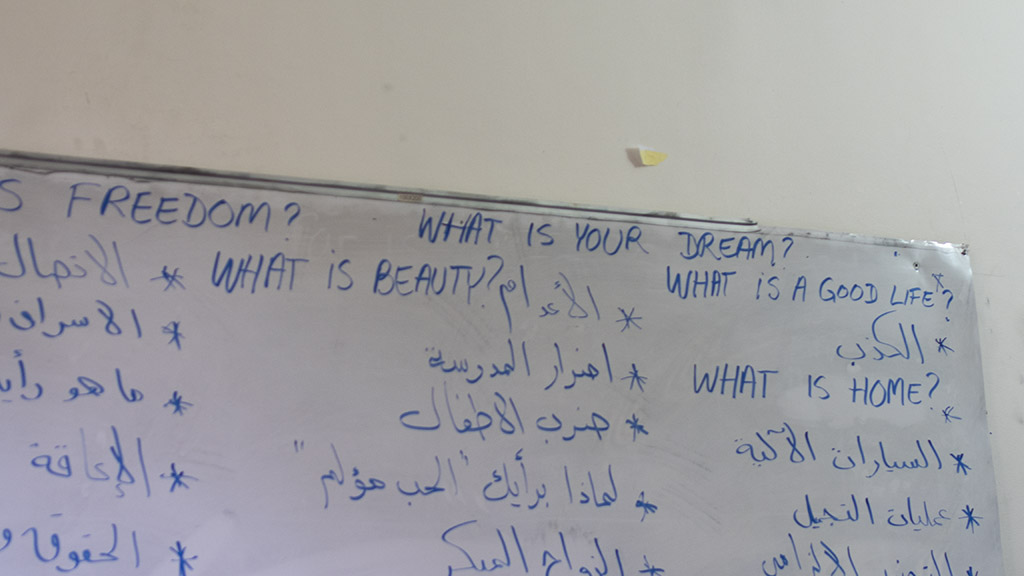 S FREEDOM?
WHAT IS YOUR DREAM?
WHAT IS BEAUTY?
WHAT IS A GOOD LIFE?
* الكذب
WHAT IS HOME?
* السيارات الآلية
* عمليات التجميل
* الأعدام
* اضرار المدرسة
* ضرب الاطفال
* لماذا برأيك "الحب مؤلم"
* الزواج المبكر
* الاسراف
* ما هو رأيك
* الإعاقة
* الحقوق و